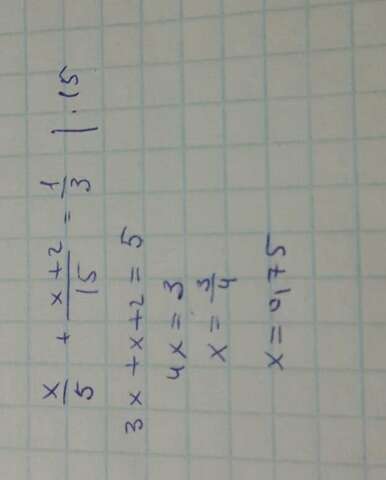 x/5 + x+2/15 = 1/3 | · 15
3x + x+2 = 5
4x = 3
x = 3/4
x = 0,75